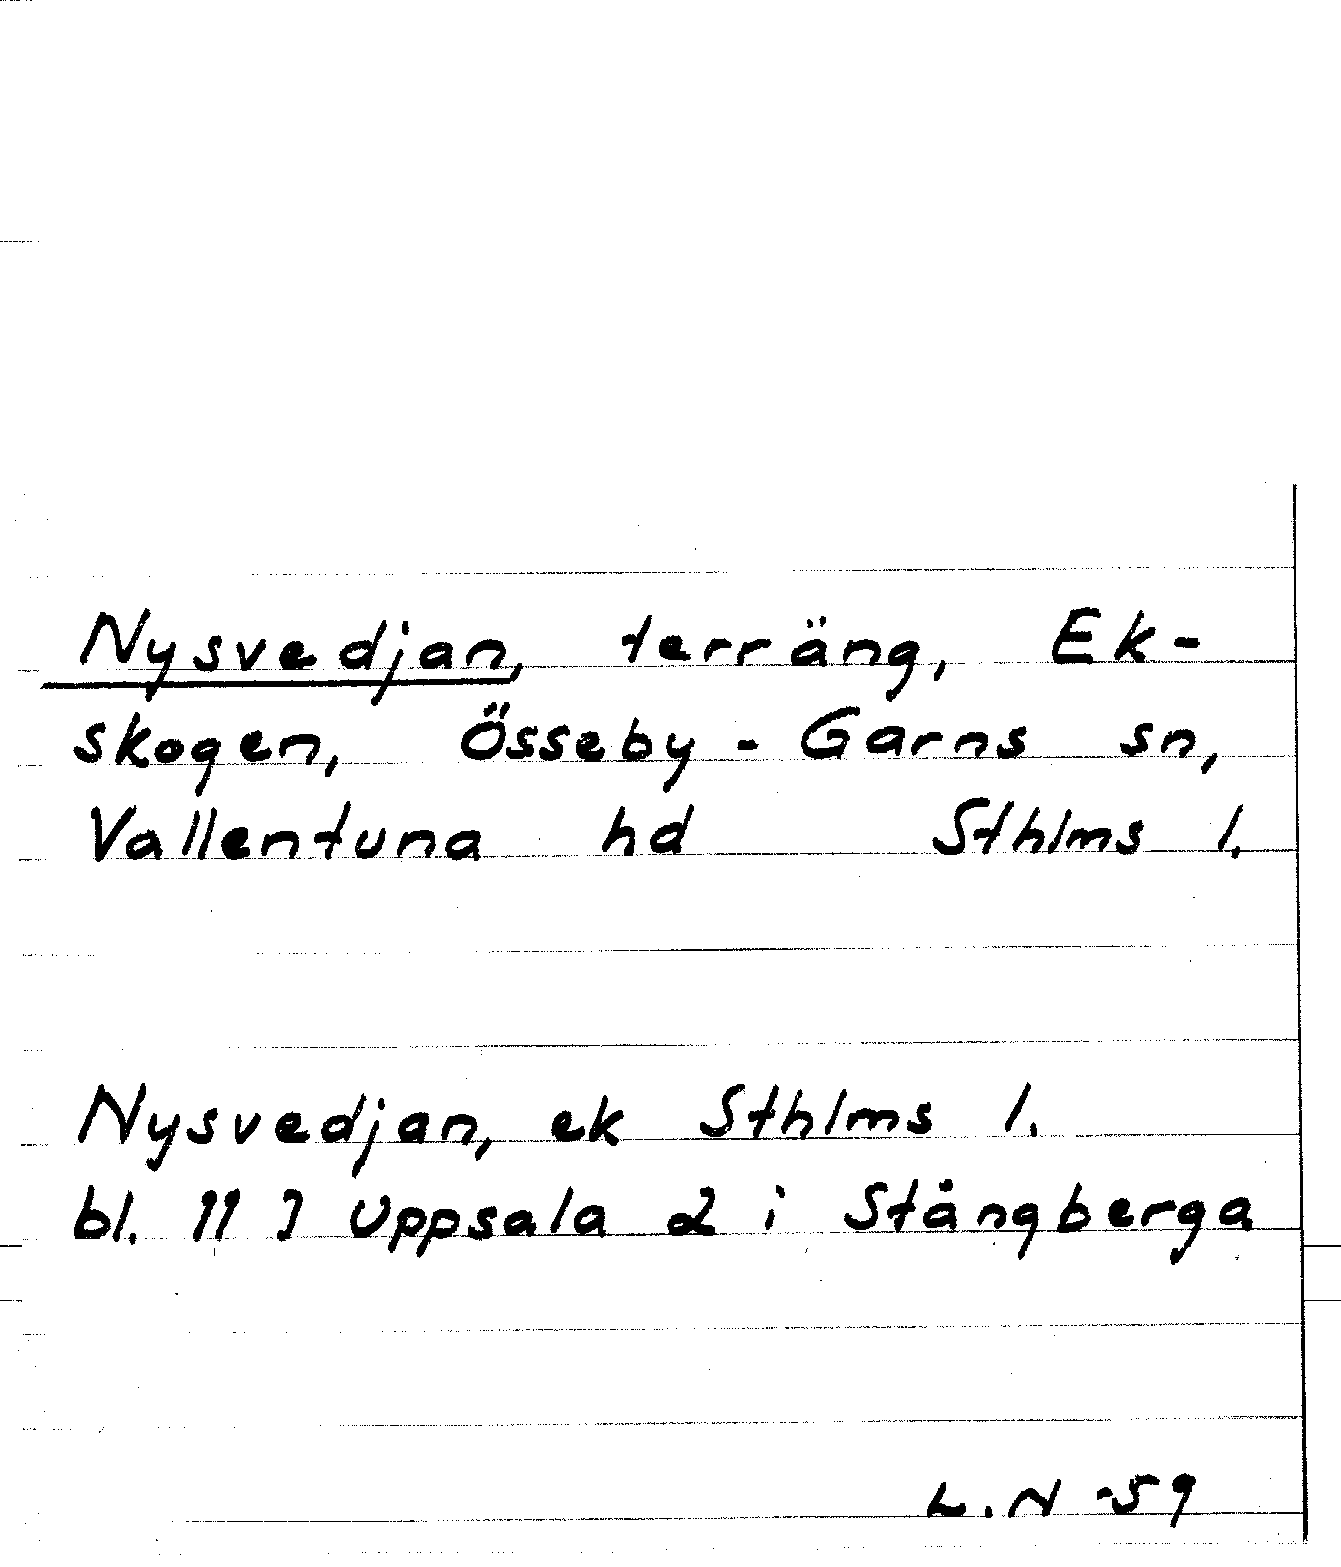 Nysvedjan, terräng, Ek-
skogen, Össeby - Garns sn,
Vallentuna hd Sthlms l.
Nysvedjan, ek Sthlms l.
bl. 11 J Uppsala 2 i Stångberga
L.N -59